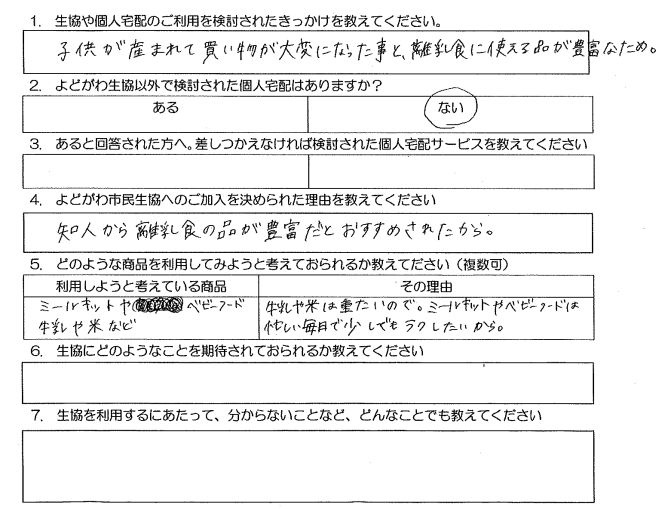 1. 生協や個人宅配のご利用を検討されたきっかけを教えてください。
子供が産まれて買い物が大変になった事と、離乳食に使える品が豊富なため。
2. よどがわ生協以外で検討された個人宅配はありますか？
ある ない
3. あると回答された方へ。差しつかえなければ検討された個人宅配サービスを教えてください
4. よどがわ市民生協へのご加入を決められた理由を教えてください
知人から離乳食の品が豊富だとおすすめされたから。
5. どのような商品を利用してみようと考えておられるか教えてださい（複数可）
利用しようと考えている商品 その理由
ミールキットや ベビーフード 牛乳や米は重たいので。ミールキットやベビーフードは
牛乳や米など 忙しい毎日で少しでもラクしたいから。
6. 生協にどのようなことを期待されておられるか教えてください
7. 生協を利用するにあたって、分からないことなど、どんなことでも教えてください